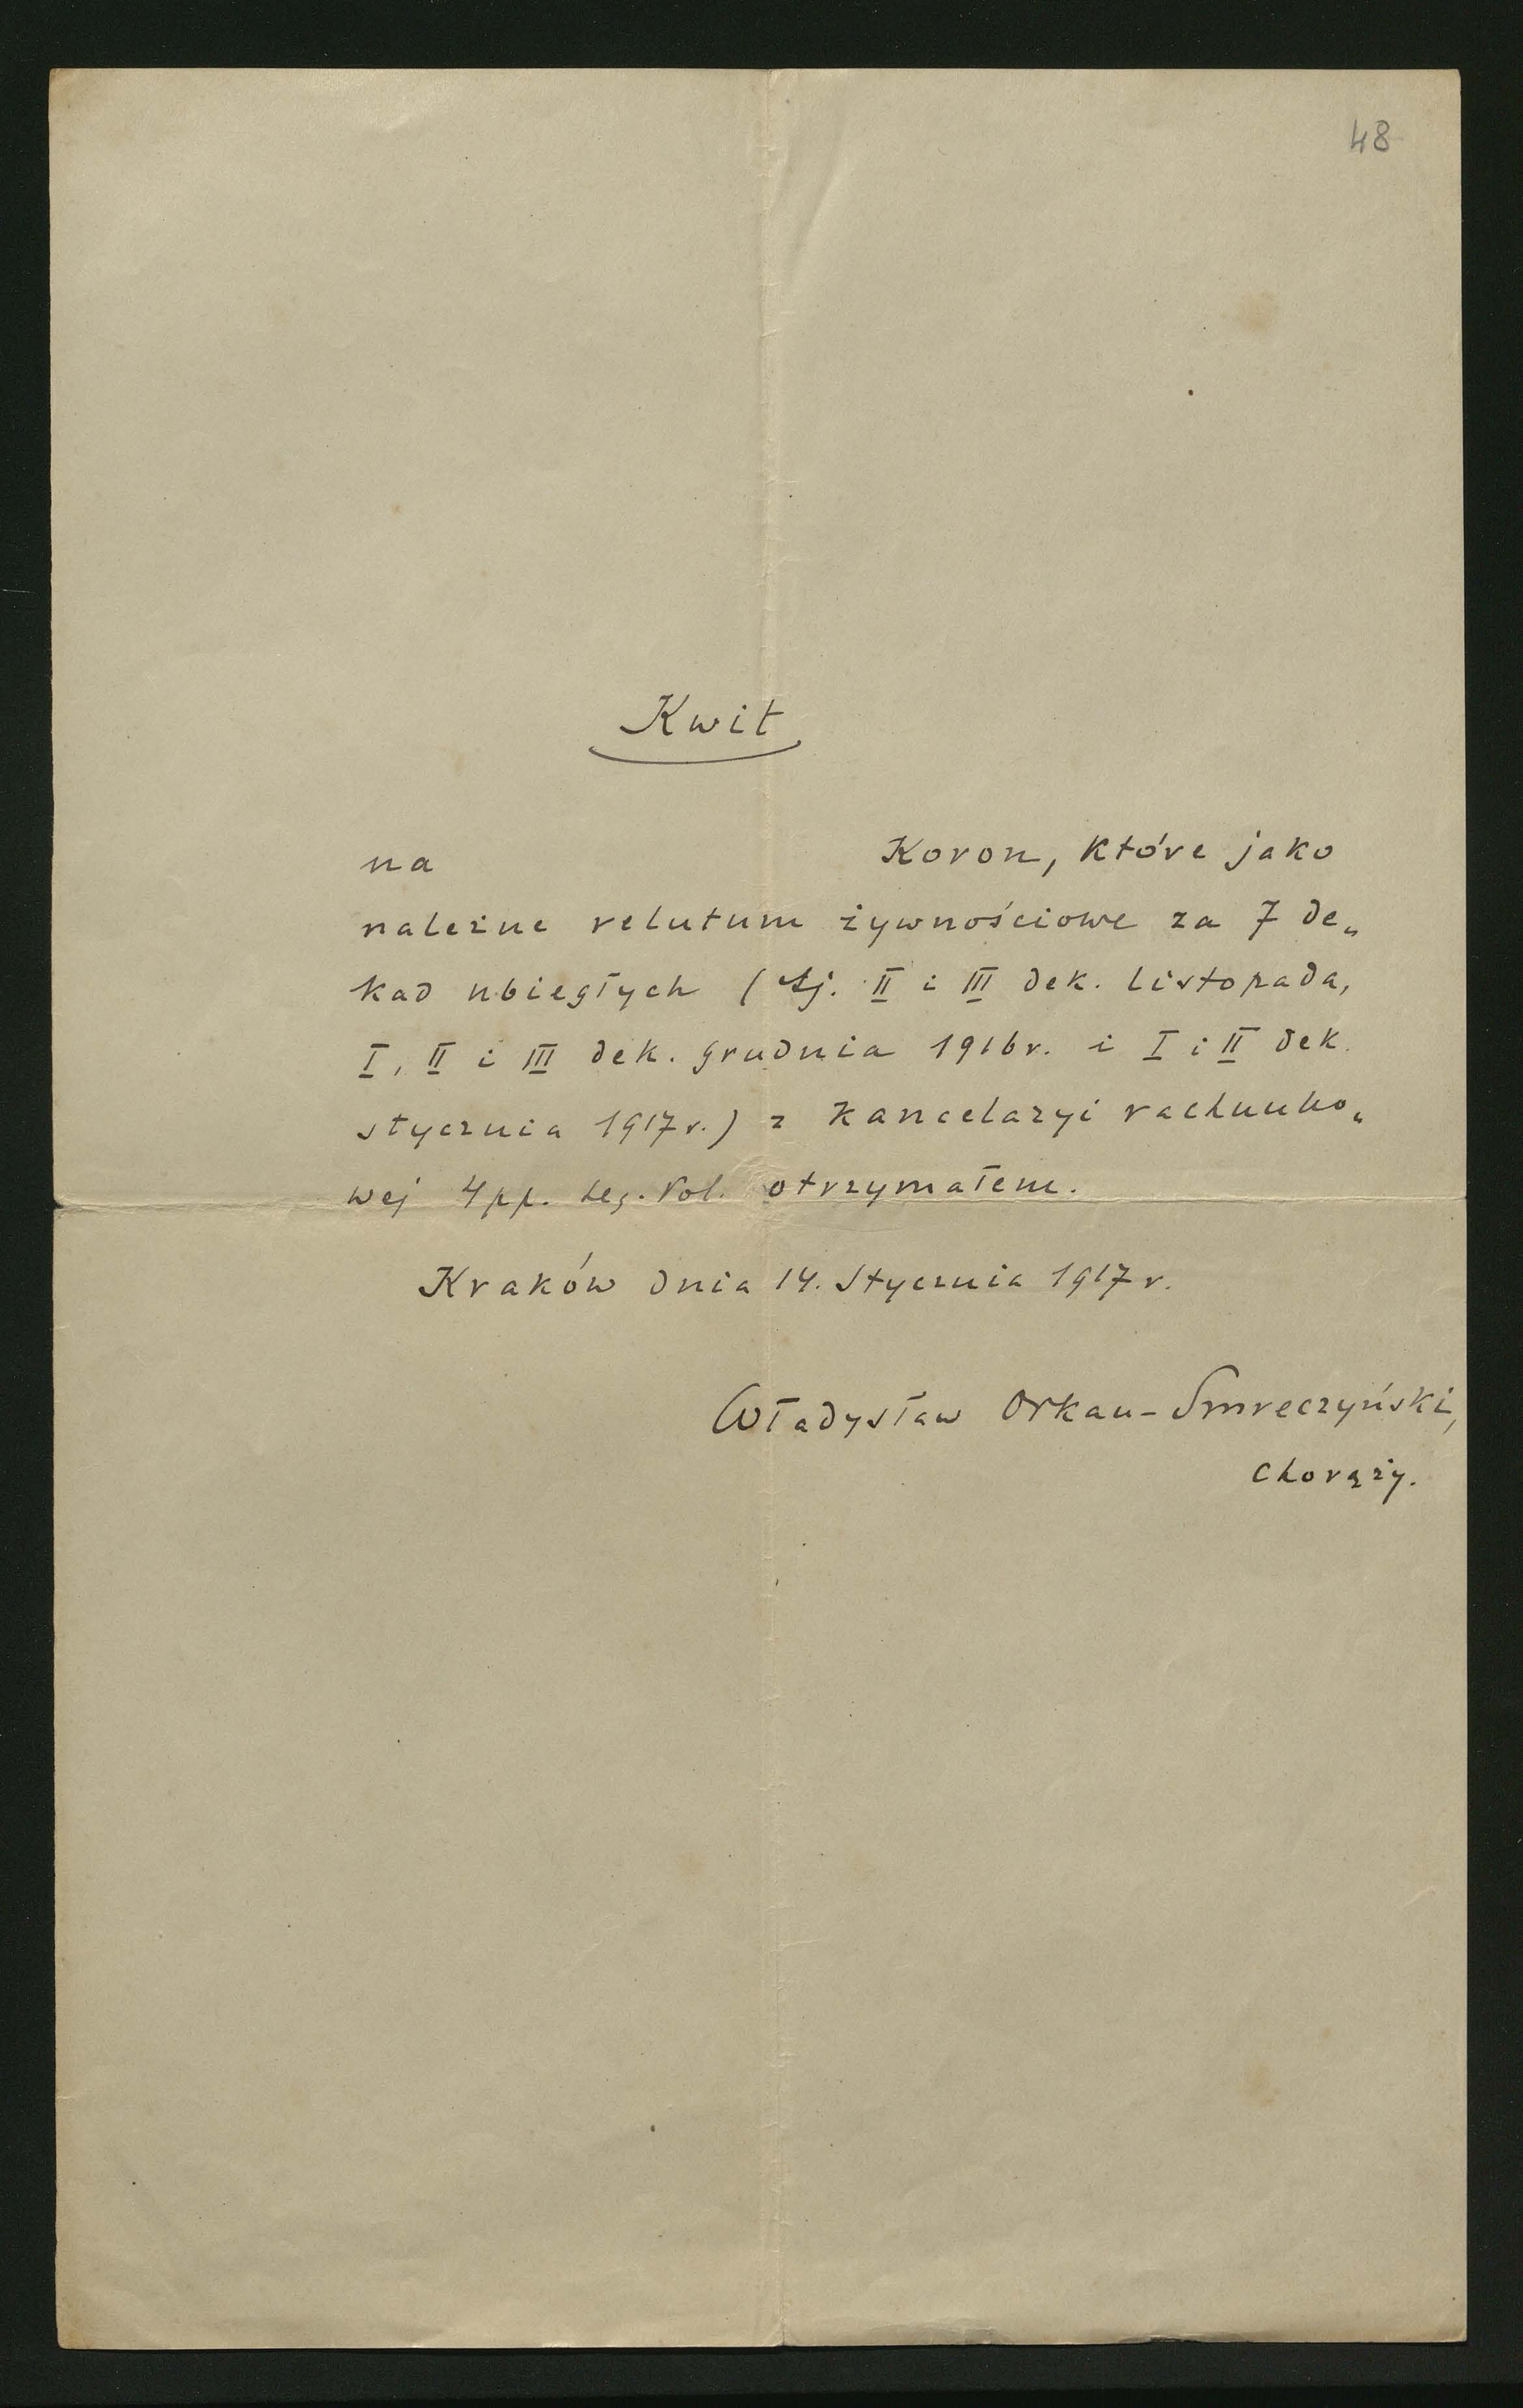 48
Kwit
na Koron, które jako
należne relutum żywnościowe za 7 de„
kad ubiegłych (tj. II i III dek. listopada,
I, II i III dek. grudnia 1916 r. i I i II dek.
stycznia 1917 r.) z kancelaryi rachunko„
wej 4 pp. Leg. Pol. otrzymałem.
Kraków dnia 14. Stycznia 1917 r.
Władysław Orkan-Smreczyński,
chorąży.